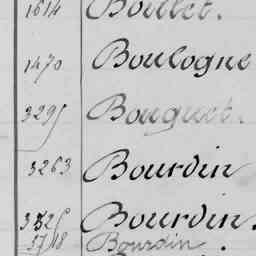 1614 Boullet.
1470 Boulogne
3295 Bouguet.
3263 Bourdin
3325 Bourdin.
3718 Bourdin.